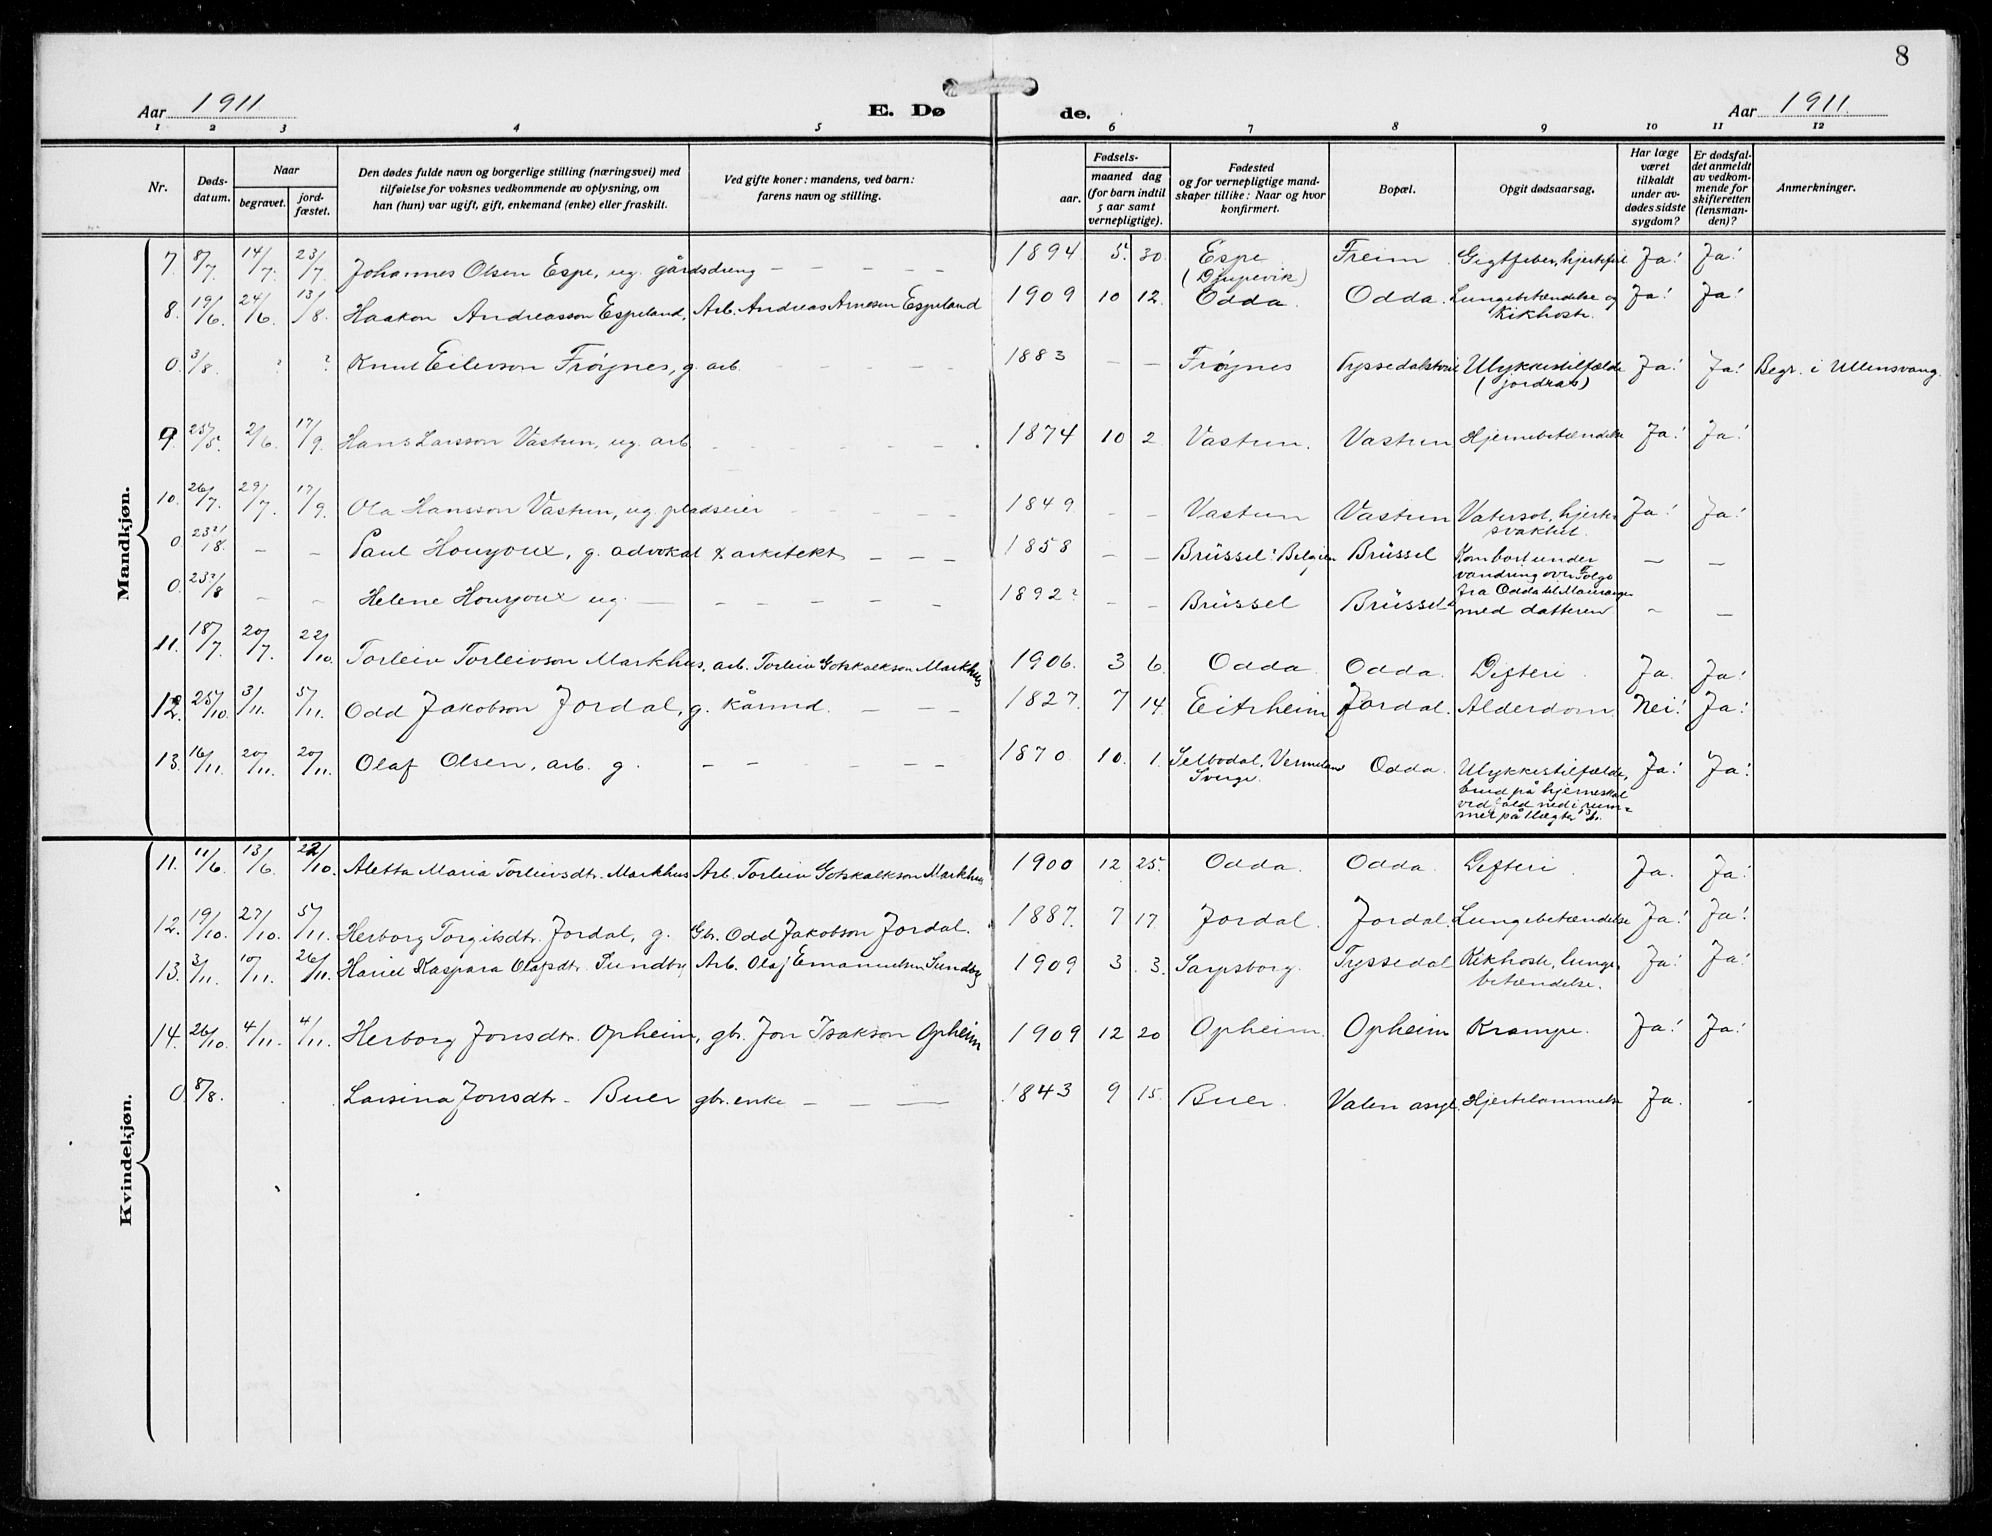 8
Aar 1911. E. Dø de. Aar 1911.
1 2 3 4 5 6 7 8 9 10 11 12
Nr. Døds-datum. Naar begravet. jord-fæstet. Den dødes fulde navn og borgerlige stilling (næringsvei) med tilføielse for voksnes vedkommende av oplysning, om han (hun) var ugift, gift, enkemand (enke) eller fraskilt. Ved gifte koner: mandens, ved barn: farens navn og stilling. Fødsels- aar. maaned dag (for barn indtil 5 aar samt vernepligtige). Fødested og for vernepligtige mand-skaper tillike: Naar og hvor konfirmert. Bopæl. Opgit dødsaarsag. Har læge været tilkaldt under av-dødes sidste sygdom? Er dødsfal-det anmeldt av vedkom-mende for skifteretten (lensman-den)? Anmerkninger.
Mandkjøn.
7. 8/7. 14/7. 23/7. Johannes Olsen Espe, ug. gårdsdreng — — — — — 1894 5. 30. Espe (Djupevik) Freim Gigtfeber, hjertefeil Ja! Ja!
8. 19/6. 24/6. 13/8. Haakon Andreasson Espeland, Arb. Andreas Arnesen Espeland 1909 10 12. Odda. Odda. Lungebetændelse og Kikhoste. Ja! Ja!
0. 3/8. ? ? Knut Eilevson Frøynes, g. arb. — — — — — 1883 — — Frøynes Ulykkestilfælde (jordras) Ja! Ja! Begr. i Ullensvang.
9. 25/5. 2/6. 17/9. Hans Larsson Vastun, ug. arb. — — — — — 1874 10 2. Vastun. Vastun Hjernebetændelse Ja! Ja!
10. 26/7. 29/7. 17/9. Ola Hansson Vastun, ug. pladseier — — — — 1849. — — Vastun Vastun Vatersot, hjerte-svakhet. Ja! Ja!
0 23?/8. — — Paul Houyoux, g. advokat & arkitekt — — — 1858 — — Brüssel i Belgien Brüssel Kom bort under — —
0. 23?/8 — — Helene Houyoux ug. — — — — — 1892? — — Brüssel Brüssel vandring over Folge fra Odda til Mauranger med datteren — —
11. 18/7. 20/7. 22/10. Torleiv Torleivson Markhus, arb. Torleiv Gotskalkson Markhus 1906. 3 6. Odda Odda. Difteri. Ja. Ja!
12. 25/10. 3/11. 5/11. Odd Jakobson Jordal, g. kårmd. — — — 1827. 7 14. Eitrheim Jordal. Alderdom. Nei! Ja!
13. 16/11. 20/11. 20/11. Olaf Olsen, arb. g. — — — — — 1870. 10. 1. Selbodal, Vermeland Sverge. Odda. Ulykkestilfælde, brud på hjerneskal ved fald ned i Ja! Ja!
Kvindekjøn.
11. 11/6. 13/6. 22/10. Aletta Maria Torleivsdtr. Markhus Arb. Torleiv Gotskalkson Markhus 1900 12 25. Odda. Odda. Difteri. Ja. Ja!
12. 19/10. 27/10. 5/11. Herborg Torgilsdtr. Jordal, g. Gbr. Odd Jakobson Jordal. 1887. 7 17. Jordal. Jordal. Lungebetændelse Ja! Ja!
13. 3/11. 10/11. 26/11. Kaspara Olafsdtr. Sundby Arb. Olaf Emanuelsen Sundby 1909 3. 3. Sarpsborg. Tyssedal Kikhoste, lunge-betændelse. Ja! Ja!
14. 26/10. 4/11. 4/11. Herborg Jonsdtr. Opheim, gbr. Jon Isakson Opheim 1909 12 20 Opheim. Opheim Krampe. Ja! Ja!
0. 8/8. Larsina Jonsdtr. Buer gbr. enke — — — 1843 9 15. Buer. Valen asyl. Hjertelammelse Ja.